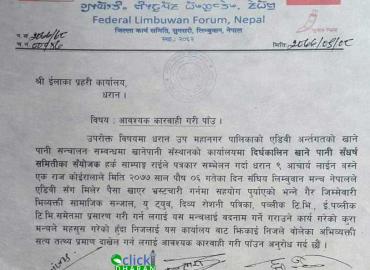 Federal Limbuwan Forum, Nepal
जिल्ला कार्य समिति, सुनसरी, लिम्बुवान, नेपाल
स्था. २०६२
प.सं. २०७७/७८
च.नं.
मिति:
श्री ईलाका प्रहरी कार्यालय,
धरान।
विषय : आवश्यक कारबाही गरी पाउँ।
उपरोक्त विषयमा धरान उप महानगर पालिकाको एडिवी अर्न्तगतको खाने
पानी सन्चालन सम्वन्धमा खानेपानी संस्थानको कार्यालयमा दिर्घकालिन खाने पानी सँघर्ष
समितीका सँयोजक हर्क साम्पाङ राईले पत्रकार सम्मेलन गर्दा धरान ९ आचार्य लाईन बस्ने
एक राज कोईरालाले मिति २०७७ साल पौष ०६ गतेका दिन संघिय लिम्बुवान मन्च नेपालले
एडिवी सँग मिलेर पैसा खाएर भ्रस्टचारी गर्नमा सहयोग पुर्याएको भन्ने गैर जिम्मेवारी
भिव्यक्ती सामाजिक सन्जाल, यु ट्युव, दिव्य रोशनी पत्रिका, पव्लीक टि.भि., ई.पव्लीक
टि.भि समेतमा प्रसारण गरी गर्न लगाई यस मन्चलाई बदनाम गर्ने गराउने कार्य गरेको कुरा
मन्चले महसुस गरेको हुँदा निजलाई यस कार्यालय बाट झिकाई निजले वोलेका अभिव्यक्ती
सत्य तत्थ्य प्रमाण दाखेल गर्न लगाई आवश्यक कारवाही गरी पाउँन अनुरोध गर्द छौं ।
click
DHARAN